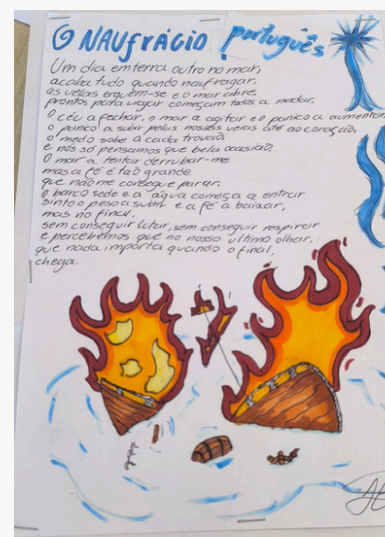 O NAUfrÁGiO português
Um dia em terra outro no mar,
acaba tudo quando naufragar,
as velas erguem-se e o mar abre,
prontos para viajar começam todos a nadar.
O céu a fechar, o mar a agitar e o panico a aumentar
o panico a subir pelas nossas veias até ao coração,
o medo sobe a cada trovão
e nós só pensamos que bela ocasião.
O mar a tentar derrubar-me
mas a fé é tão grande
que não me consegue parar.
O barco sede e a água começa a entrar
sinto o peso a subir e a fé a baixar,
mas no final,
sem conseguir lutar, sem conseguir respirar
e percebemos que no nosso ultimo olhar,
que nada importa quando o final,
chega.